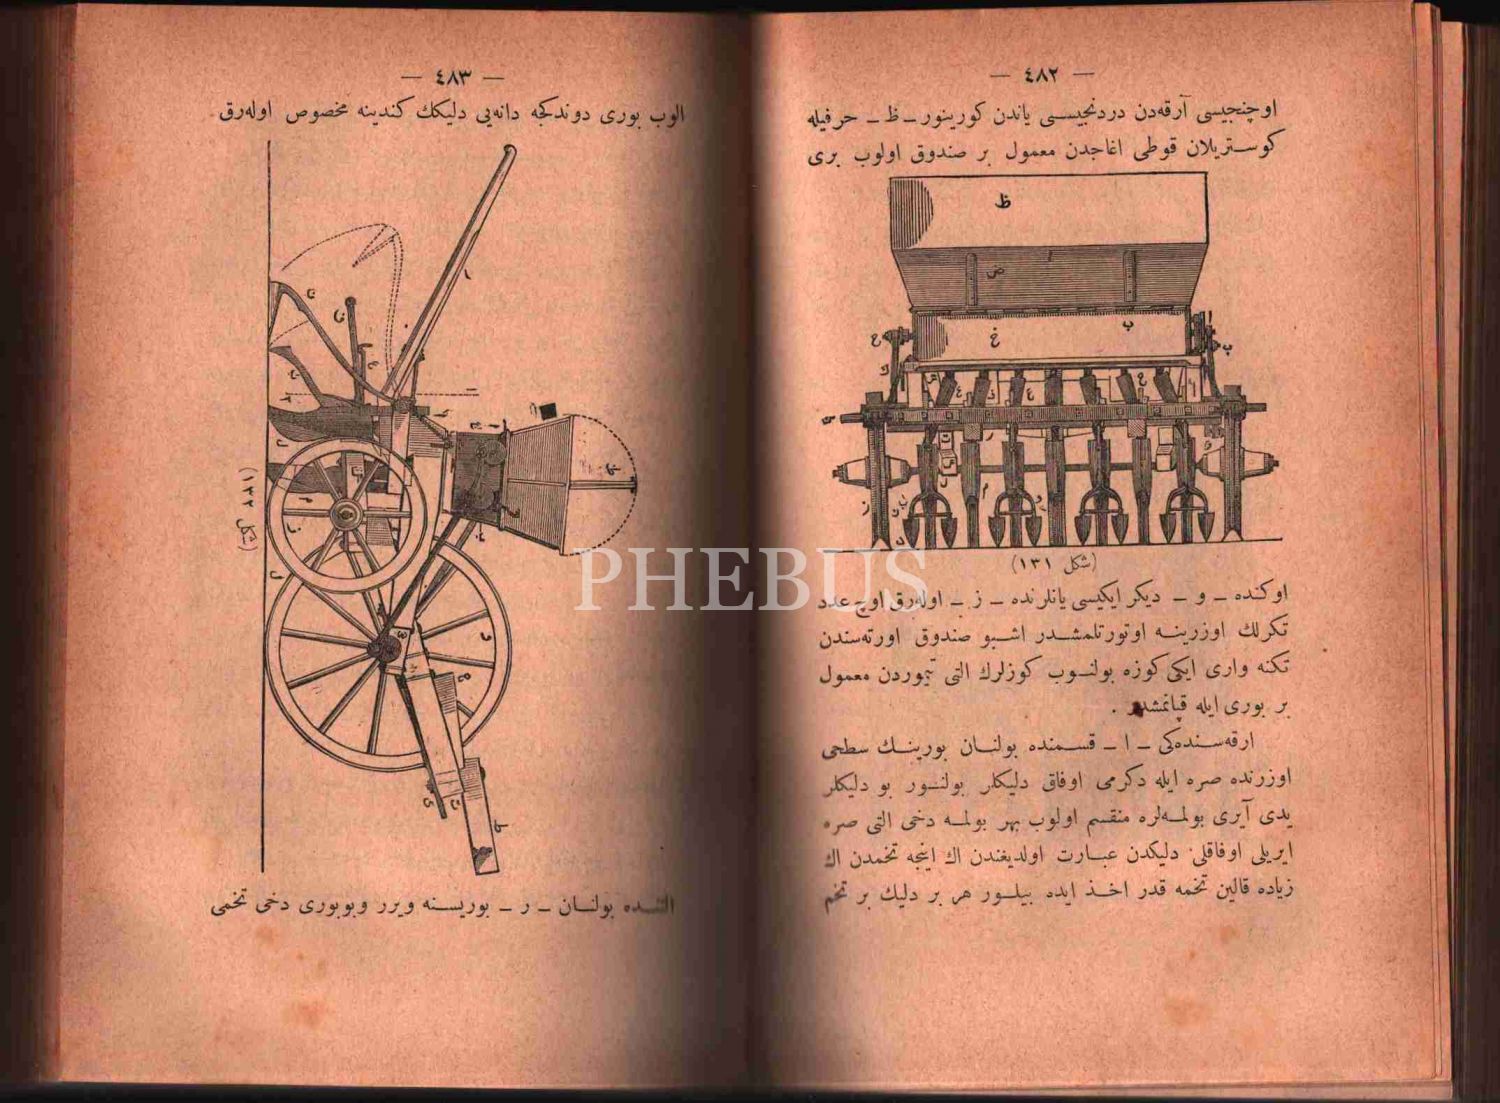 — ٤٨٢ —
اوچنجیسی آرقه‌دن دردنجیسی یاندن كورینور ـ ظ ـ حرفیله
كوستریلان قوطی اغاجدن معمول بر صندوق اولوب بری
ظ
ض
غ
ب
(شكل ١٣١)
اوكنده ـ و ـ دیكر ایكیسی یانلرنده ـ ز ـ اوله‌رق اوچ عدد
تكرلك اوزرینه اوتورتلمشدر اشبو صندوق اورته‌سندن
تكنه واری ایكی كوزه بولنوب كوزلرك التی تیموردن معمول
بر بوری ایله قپانمشدر .
ارقه‌سنده‌كی ـ ا ـ قسمنده بولنان بورینك سطحی
اوزرنده صره ایله دكرمی اوفاق دلیكلر بولنور بو دلیكلر
یدی آیری بولمه‌لره منقسم اولوب بهر بولمه دخی التی صره
ایریلی اوفاقلی دلیكدن عبارت اولدیغندن اك اینجه تخمدن اك
زیاده قالین تخمه قدر اخذ ایده بیلور هر بر دلیك بر تخم
— ٤٨٣ —
الوب بوری دوندكجه دانه‌یی دلیكك كندینه مخصوص اوله‌رق
(شكل ١٣٢)
التنده بولنان ـ ر ـ بوریسنه ویرر وبوبوری دخی تخمی
PHEBUS